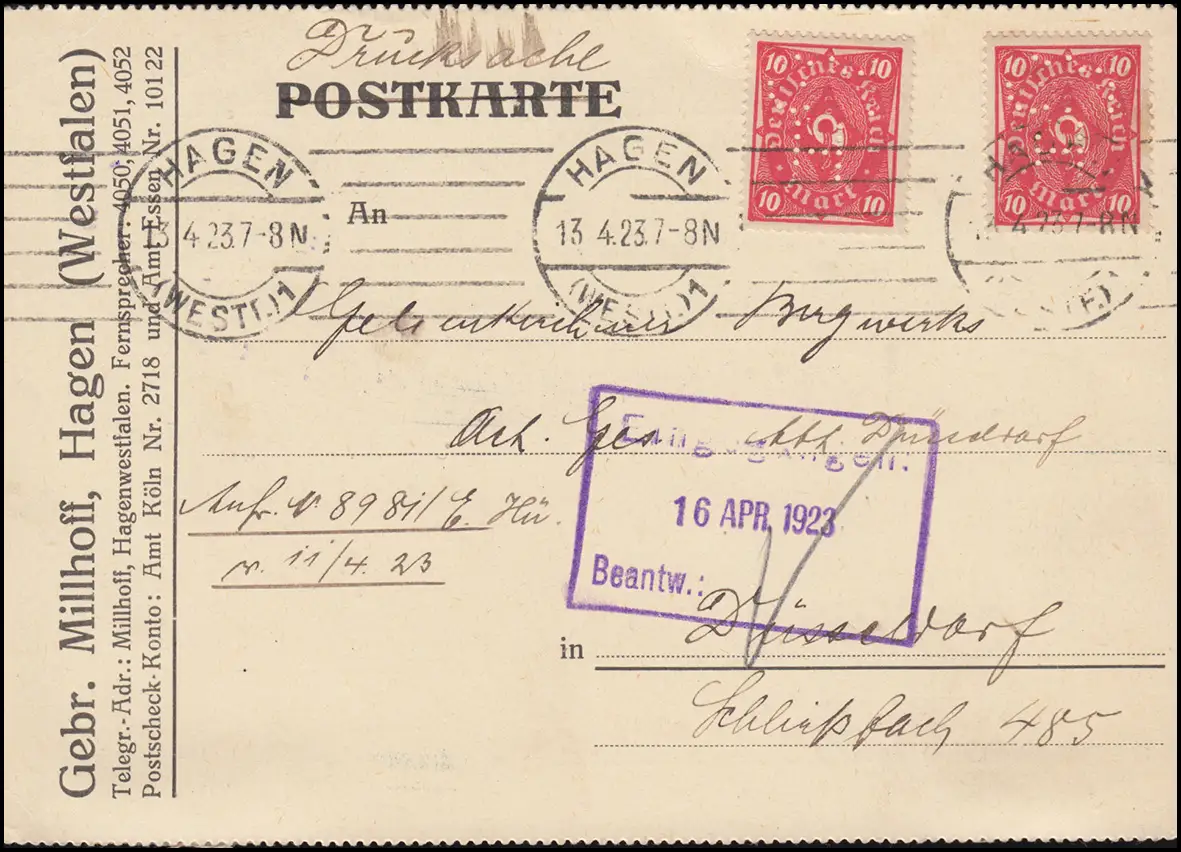 Drucksache
POSTKARTE
10 10
Deutsches Reich
Mark
10 10
10 10
Deutsches Reich
Mark
10 10
HAGEN
13 4.23.7-8N
(WESTF.)1
HAGEN
13 4.23.7-8N
(WESTF.)1
HAGEN
13 4.23.7-8N
(WESTF.)
An
Gelsenkirchener Bergwerks
Act. Ges Abt. Düsseldorf
Eingegangen.
16 APR. 1923
Beantw.:
Anfr. V 8981/E. Hü.
v. 11/4.23
in Düsseldorf
Schließfach 485
Gebr. Millhoff, Hagen (Westfalen)
Telegr.-Adr.: Millhoff, Hagenwestfalen. Fernsprecher: 4050, 4051, 4052
Postscheck-Konto: Amt Köln Nr. 2718 und Amt Essen Nr. 10122